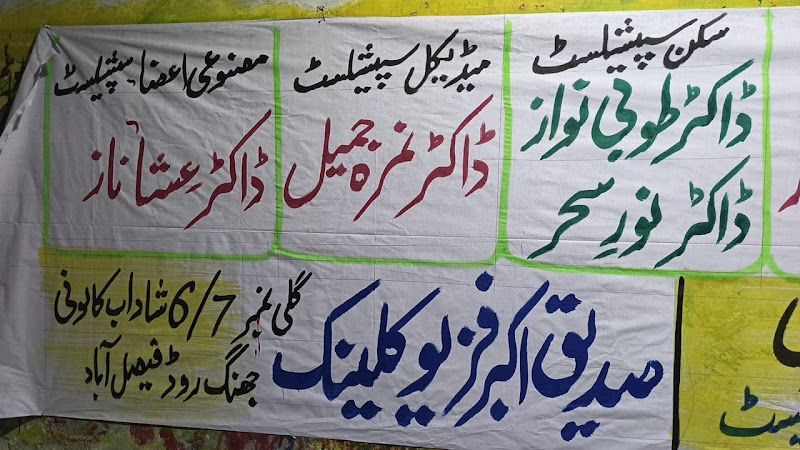 سکن سپیشلسٹ
ڈاکٹر طوبیٰ نواز
ڈاکٹر نورِ سحر
میڈیکل سپیشلسٹ
ڈاکٹر نمرہ جمیل
مصنوعی اعضاء سپشلسٹ
ڈاکٹر عِشنا ناز
صدیق اکبر فزیو کلینک
گلی نمبر 6/7 شاداب کالونی
جھنگ روڈ فیصل آباد